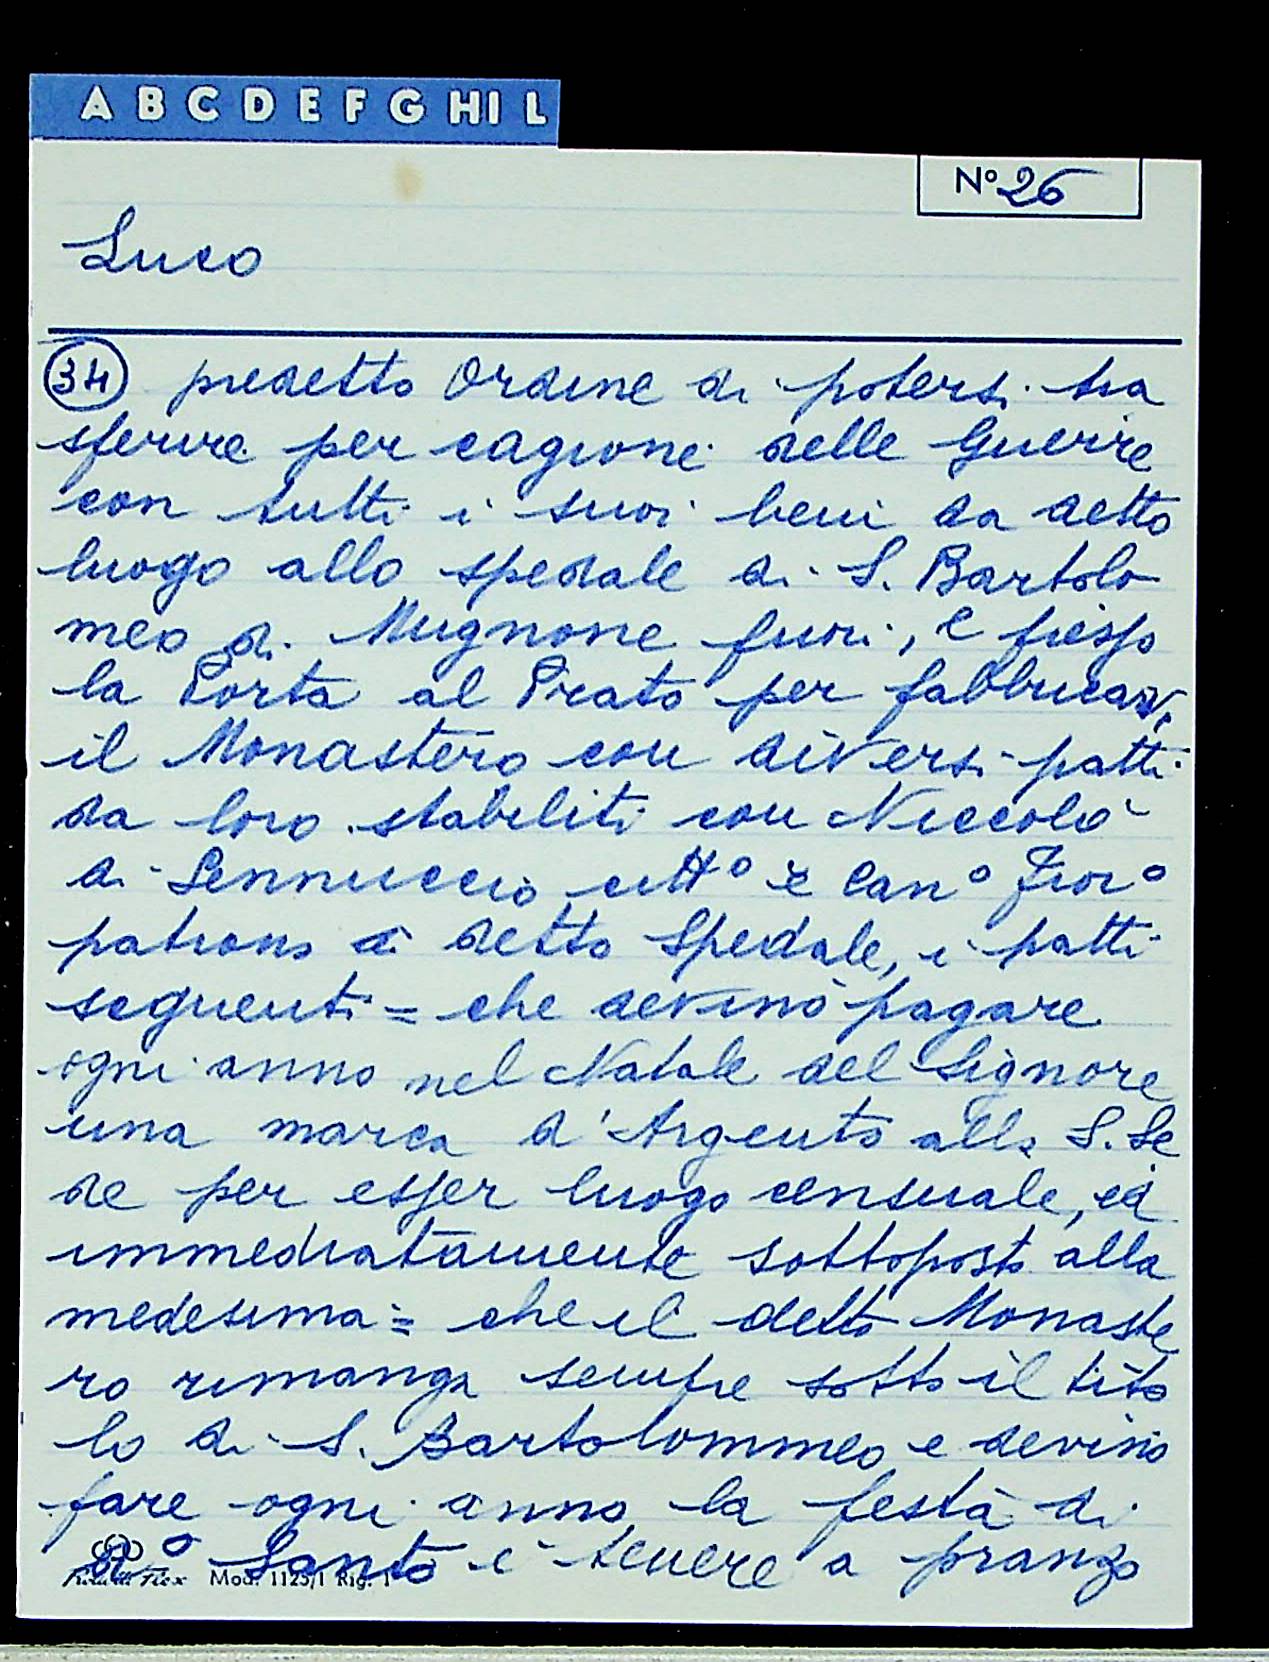 A B C D E F G HI L
Nº 26
Luco
34 predetto Ordine di potersi tra
sferire per cagione delle Guerre
con tutti i suoi beni da detto
luogo allo spedale di S. Bartolo
meo di Mugnone fuori, e presso
la Porta al Prato per fabbricarvi
il Monastero con diversi patti
da loro stabiliti con Niccolò
di Sennuccio citt° e Can° Fior°
patrono di detto Spedale, i patti
seguenti = che devino pagare
ogni anno nel Natale del Signore
una marca d'Argento alla S. Se
de per esser luogo censuale, ed
immediatamente sottoposto alla
medesima = che il detto Monaste
ro rimanga sempre sotto il tito
lo di S. Bartolommeo e devino
fare ogni anno la festa di
d° Santo e tenere a pranzo
Mod. 1125/1 Rig. 1